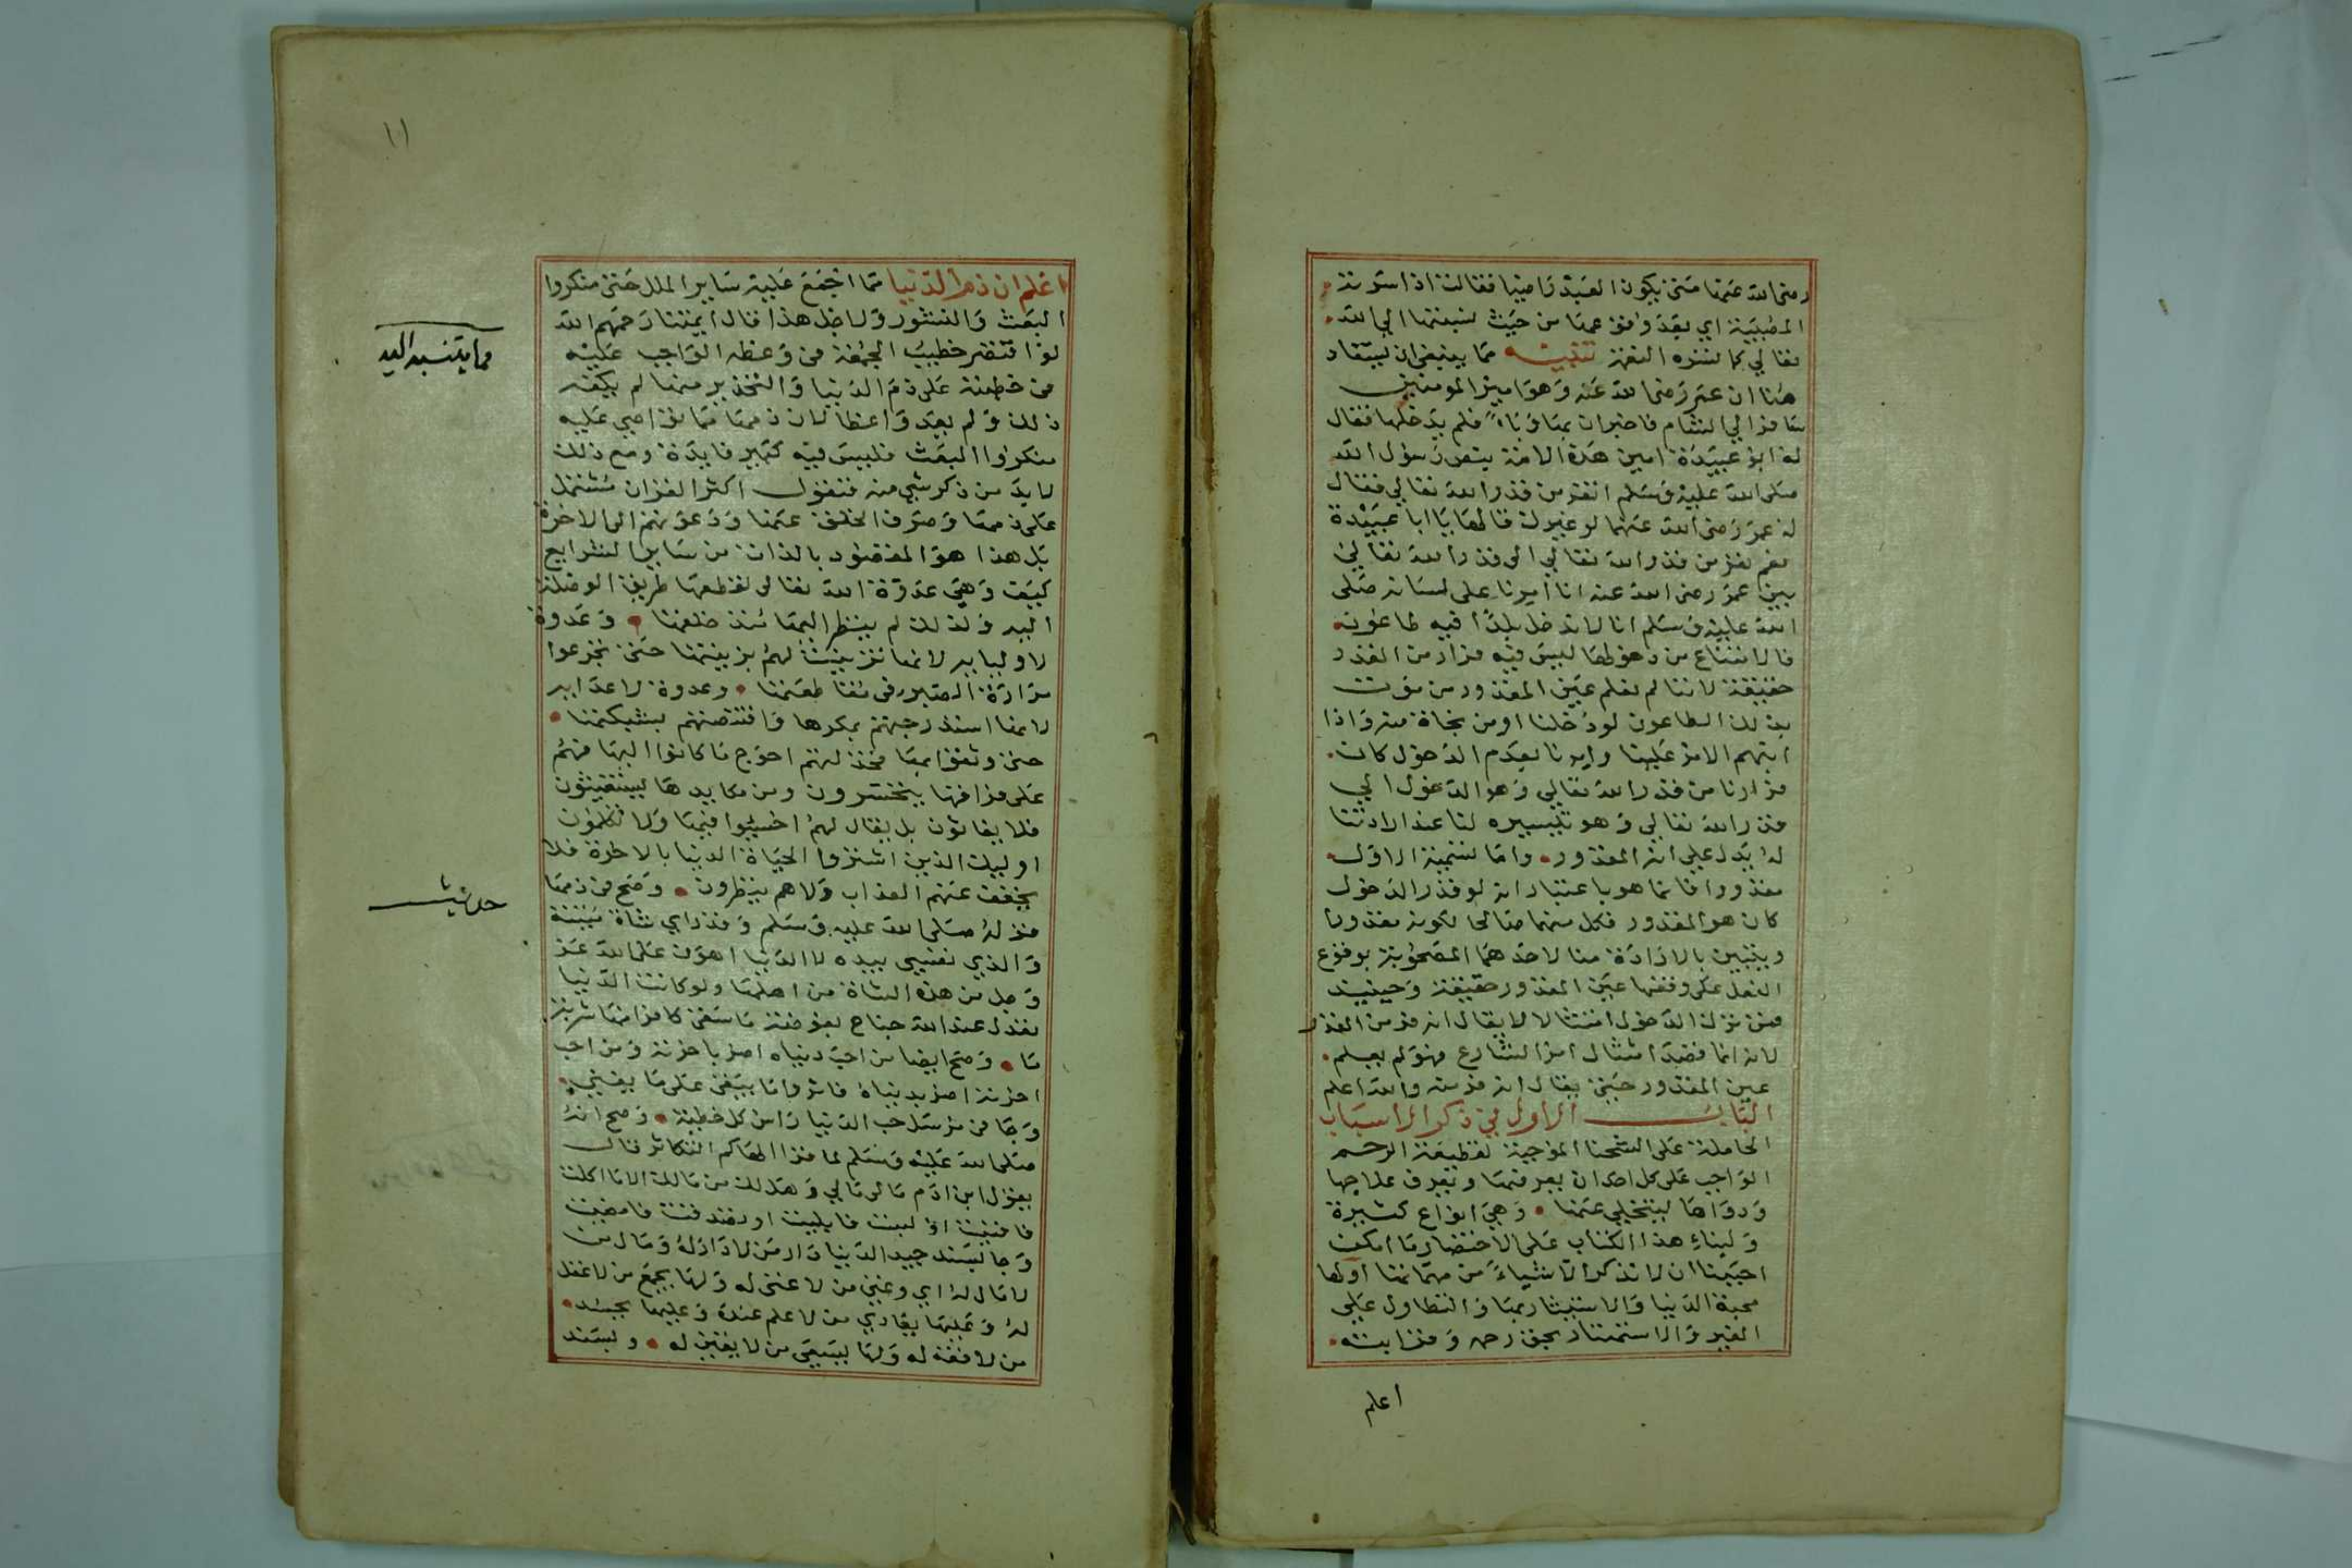 رضي الله عنها متى يكون العبد راضيا فقالت اذا سرته
المصيبة اي بعد وافق عمنا من حيث نسبتها الي الله
تعالي كما تسره النعمة تنبيه مما ينبغي ان يستفاد
هنا ان عمر رضي الله عنه وهو امير المومنين
سافر الي الشام فاخبر ان بها وباء فلم يدخلها فقال
له ابو عبيدة امين هذه الامة بنص رسول الله
صلى الله عليه وسلم اتفر من قدر الله تعالي فقال
له عمر رضي الله عنهما لو غيرك قالها يا ابا عبيدة
نعم نفر من قدر الله تعالي الى قدر الله تعالي
بين عمر رضي الله عنه انا امرنا على لسانه صلى
الله عليه وسلم انا لا ندخل بلدا فيه طاعون
فالامتناع من دخولها ليس فيه فرار من القدر
حقيقة لاننا لم نعلم عين المقدور من موت
بذلك الطاعون لو دخلنا او من نجاة منه واذا
ابهم الامر علينا وامرنا بعدم الدخول كان
فرارنا من قدر الله تعالي وهو الدخول الي
قدر الله تعالي وهو تيسيره لنا عند الارادتنا
له يدل علي انه المقدور واما تسمية الاول
مقدورا فانما هو باعتبار انه لو قدر الدخول
كان هو المقدور فكل منهما صالحا لكونه مقدورا
ويتبين بالارادة منا لاحدهما المصحوبة بوقوع
الفعل على وفقها عين المقدور حقيقة وحينيذ
فمن ترك الدخول امتثالا لا يقال انه فر من القدر
لانه انما قصد امتثال امر الشارع فهو لم يعلم
عين المقدور حتى يقال انه فر منه والله اعلم
الباب الاول في ذكر الاسباب
الحاملة على الشحنا الموجبة لقطيعة الرحم
الواجب على كل احد ان يعرفها ويعرف علاجها
ودواها ليتخلي عنها وهي انواع كثيرة
ولبناء هذا الكتاب على الاختصار ما امكن
احببنا ان لا نذكر الا شياء من مهماتها اولها
محبة الدنيا والاستيثار بها والتطاول على
الغير والاستهتار بحق رحمه وقرابته
اعلم
١١
اعلم ان ذم الدنيا مما اجمع عليه ساير الملل حتى منكروا
البعث والنشور ولاجل هذا قال ايمتنا رحمهم الله
لو اقتصر خطيب الجمعة في وعظه الواجب عليه
في خطبته على ذم الدنيا والتحذير منها لم يكفه
ذلك ولم يعد واعظا لان ذمها مما تواصي عليه
منكروا البعث فليس فيه كبير فايدة ومع ذلك
لا بد من ذكر شي منه فنقول اكثر القران مشتمل
على ذمها وصرف الخلق عنها ودعوتهم الى الاخرة
بل هذا هو المقصود بالذات من ساير الشرايع
كيف وهي عدوة الله تعالى لقطعها طريق الوصلة
اليه ولذلك لم ينظر اليها منذ خلقها وعدوة
لاوليايه لانها تزينت لهم بزينتها حتى تجرعوا
مرارة الصبر في مقاطعتها وعدوة لاعدايه
لانها استدرجتهم بمكرها واقتنصتهم بشبكتها
حتى وثقوا بها فخذلتهم احوج ما كانوا اليها فهم
على فراقها يتحسرون ومن مكايدها يستغيثون
فلا يغاثون بل يقال لهم اخسئوا فيها ولا تكلمون
اوليك الذين اشتروا الحياة الدنيا بالاخرة فلا
يخفف عنهم العذاب ولا هم ينظرون وصح في ذمها
قوله صلى الله عليه وسلم وقد راي شاة ميتة
والذي نفسي بيده لا الدنيا اهون على الله عز
وجل من هذه الشاة من اهلها ولو كانت الدنيا
تعدل عند الله جناح بعوضة ما سقى كافرا منها شربة
ما وصح ايضا من احب دنياه اضر باخرته ومن احب
اخرته اضر بدنياه فاثروا ما يبقى على ما يفني
وجا في مرسل حب الدنيا راس كل خطيئة وصح انه
صلى الله عليه وسلم لما قرا الهاكم التكاثر قال
يقول ابن ادم مالي مالي وهل لك من مالك الا ما اكلت
فافنيت او لبست فابليت او تصدقت فامضيت
وجا بسند جيد الدنيا دار من لا دار له ومال من
لا مال له اي وغني من لا غنى له ولها يجمع من لا عقل
له وعليها يعادي من لا علم عنده وعليها يحسد
من لا فقه له ولها يسعى من لا يقين له وبسند
مما ينسب اليه
حديث